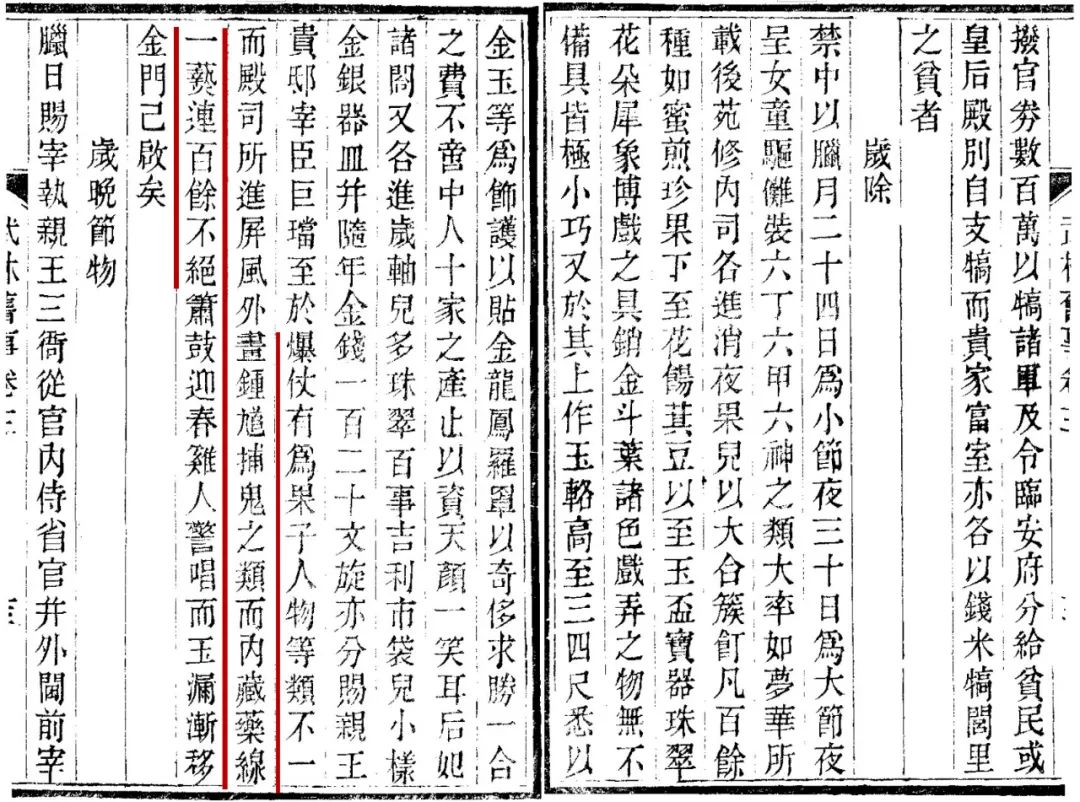 撥官劵數百萬以犒諸軍及令臨安府分給貧民或
皇后殿別自支犒而貴家富室亦各以錢米犒閭里
之貧者
歲除
禁中以臘月二十四日爲小節夜三十日爲大節夜
呈女童驅儺裝六丁六甲六神之類大率如夢華所
載後苑修內司各進消夜果兒以大合簇飣凡百餘
種如蜜煎珍果下至花餳萁豆以至玉盃寶器珠翠
花朵犀象博戲之具銷金斗葉諸色戲弄之物無不
備具皆極小巧又於其上作玉輅高至三四尺悉以
金玉等爲飾護以貼金龍鳳羅罩以奇侈求勝一合
之費不啻中人十家之產止以資天顏一笑耳后妃
諸閤又各進歲軸兒多珠翠百事吉利市袋兒小樣
金銀器皿并隨年金錢一百二十文旋亦分賜親王
貴邸宰臣巨璫至於爆仗有爲果子人物等類不一
而殿司所進屏風外畫鍾馗捕鬼之類而內藏藥線
一爇連百餘不絕簫鼓迎春雞人警唱而玉漏漸移
金門已啟矣
歲晚節物
臘日賜宰執親王三衙從官內侍省官并外閫前宰
武林舊事卷三